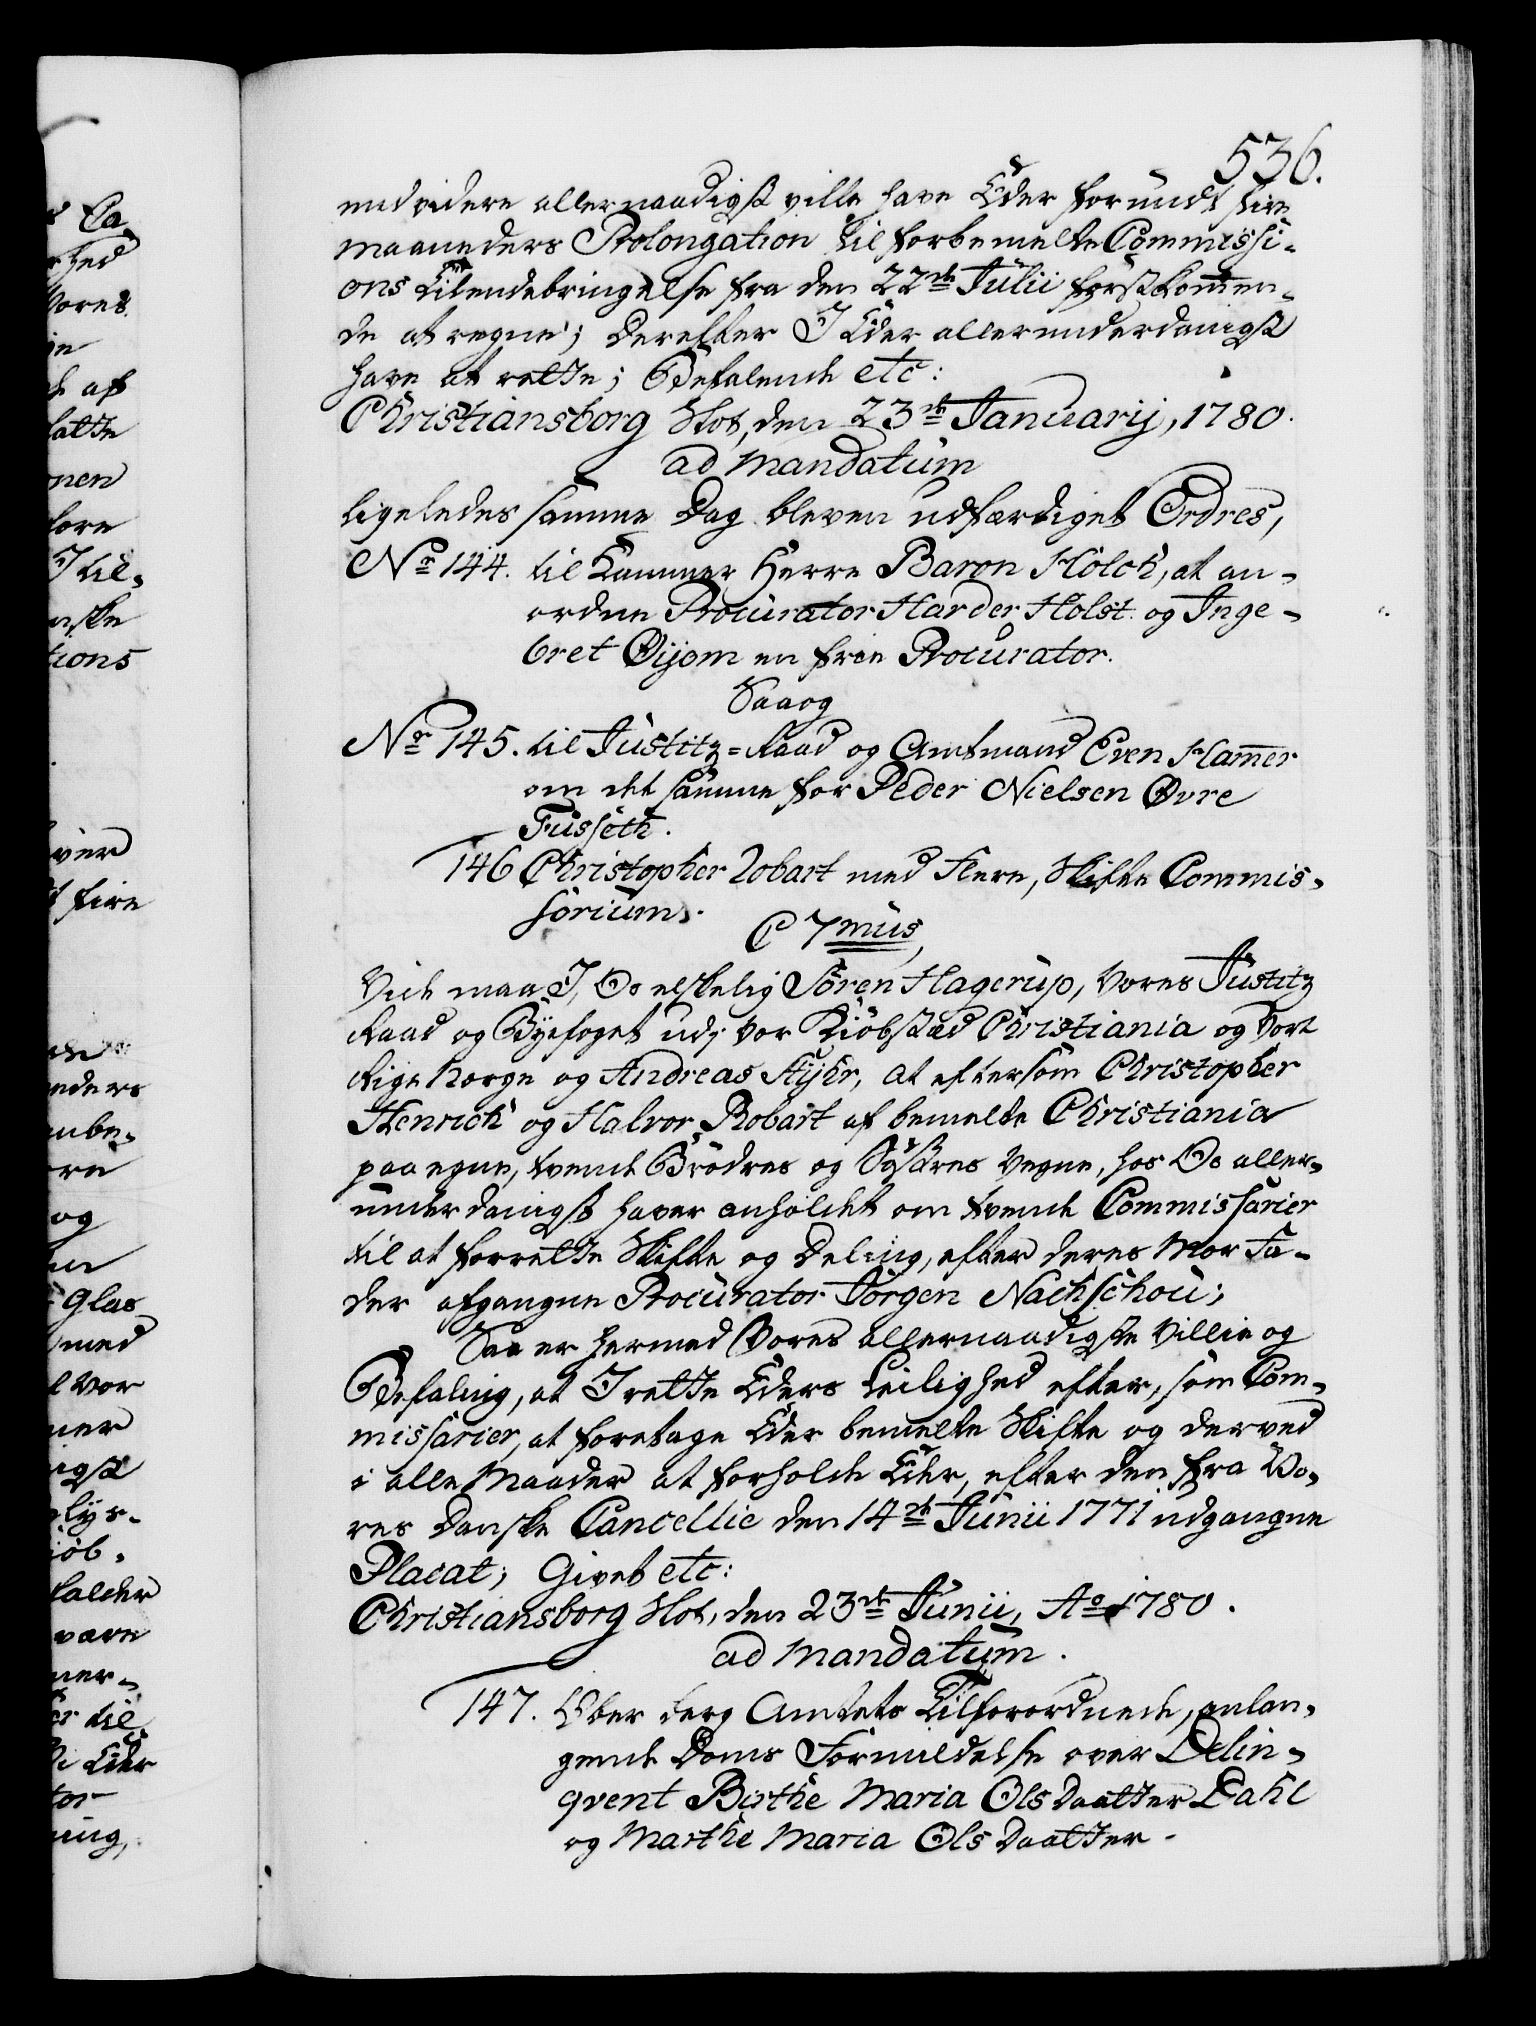 536.
endvidere allernaadigst ville have Eder forundt fire
maaneders Prolongation til forbemelte Commissi-
ons Tilendebringelse fra den 22de Julii förstkommen-
de at regne; Derefter I Eder allerunderdanigst
have at rette; Befalende etc:
Christiansborg Slot, den 23de Januarij, 1780.
ad mandatum
Ligeledes samme Dag bleven udfærdiget Ordres,
No 144. til Kammer Herre Baron Holck, at an-
ordne Procurator Harder Holst og Inge-
bret Öijom en frie Procurator.
Saaog
No 145. til Justitz-Raad og Amtmand Even Hamer
om det samme for Peder Nielsen Øvre
Fusseth.
146 Christopher Robart med Flere, Skifte Commis-
sorium.
C 7mus,
Vide maa I, Os elskelig Sören Hagerup, Vores Justitz
Raad og Byefoget udj Vor Kiöbstæd Christiania og Vort
Rige Norge og Andreas Kyhr, at eftersom Christopher
Henrich og Halvor Robart af bemelte Christiania
paa egne, tvende Brödres og Systres Vegne, hos Os aller-
underdanigst haver anholdet om tvende Commissarier
til at forrette Skifte og Deling, efter deres Mor Fa-
der afgangne Procurator Jörgen Nachschou;
Saa er hermed Vores allernaadigste Villie og
Befaling, at I rette Eders Leilighed efter, som Com-
missarier, at foretage Eder bemelte Skifte og derved
i alle Maader at forholde Eder, efter den fra Vo-
res Danske Cancellie den 14de Junii 1771 udgangne
Placat; Givet etc:
Christiansborg Slot, den 23de Junii, Ao 1780.
ad mandatum.
147. Über berg Amtets Tilforordnede, anlan-
gende Doms Formildelse over Delin-
qvent Birthe Maria Olsdaatter Dahl
og Marthe Maria Olsdaatter.